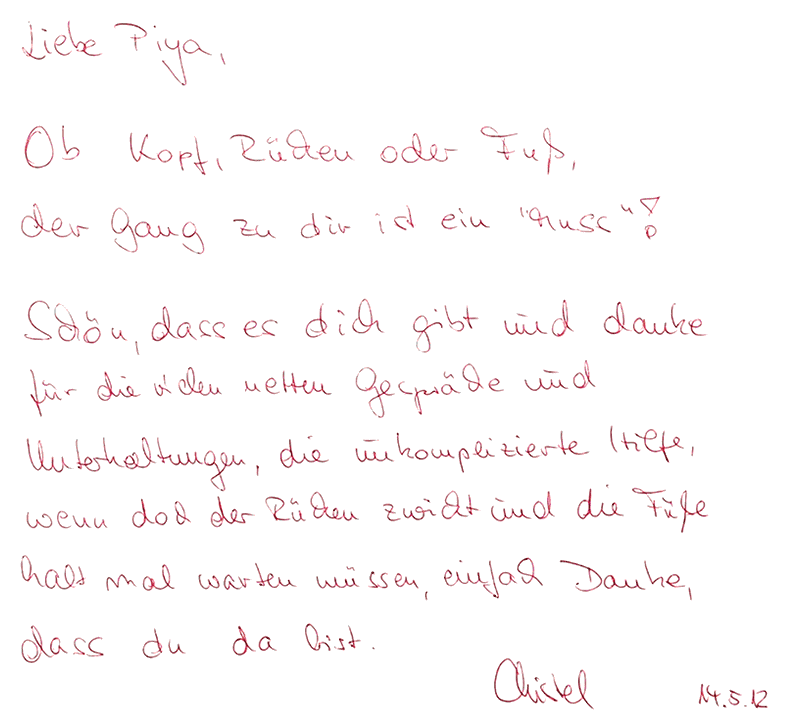 Liebe Piya,
Ob Kopf, Rücken oder Fuß,
der Gang zu dir ist ein "Muss"!
Schön, dass es dich gibt und danke
für die vielen netten Gespräche und
Unterhaltungen, die unkomplizierte Hilfe,
wenn doch der Rücken zwickt und die Füße
halt mal warten müssen, einfach Danke,
dass du da bist.
Christel 14.5.12